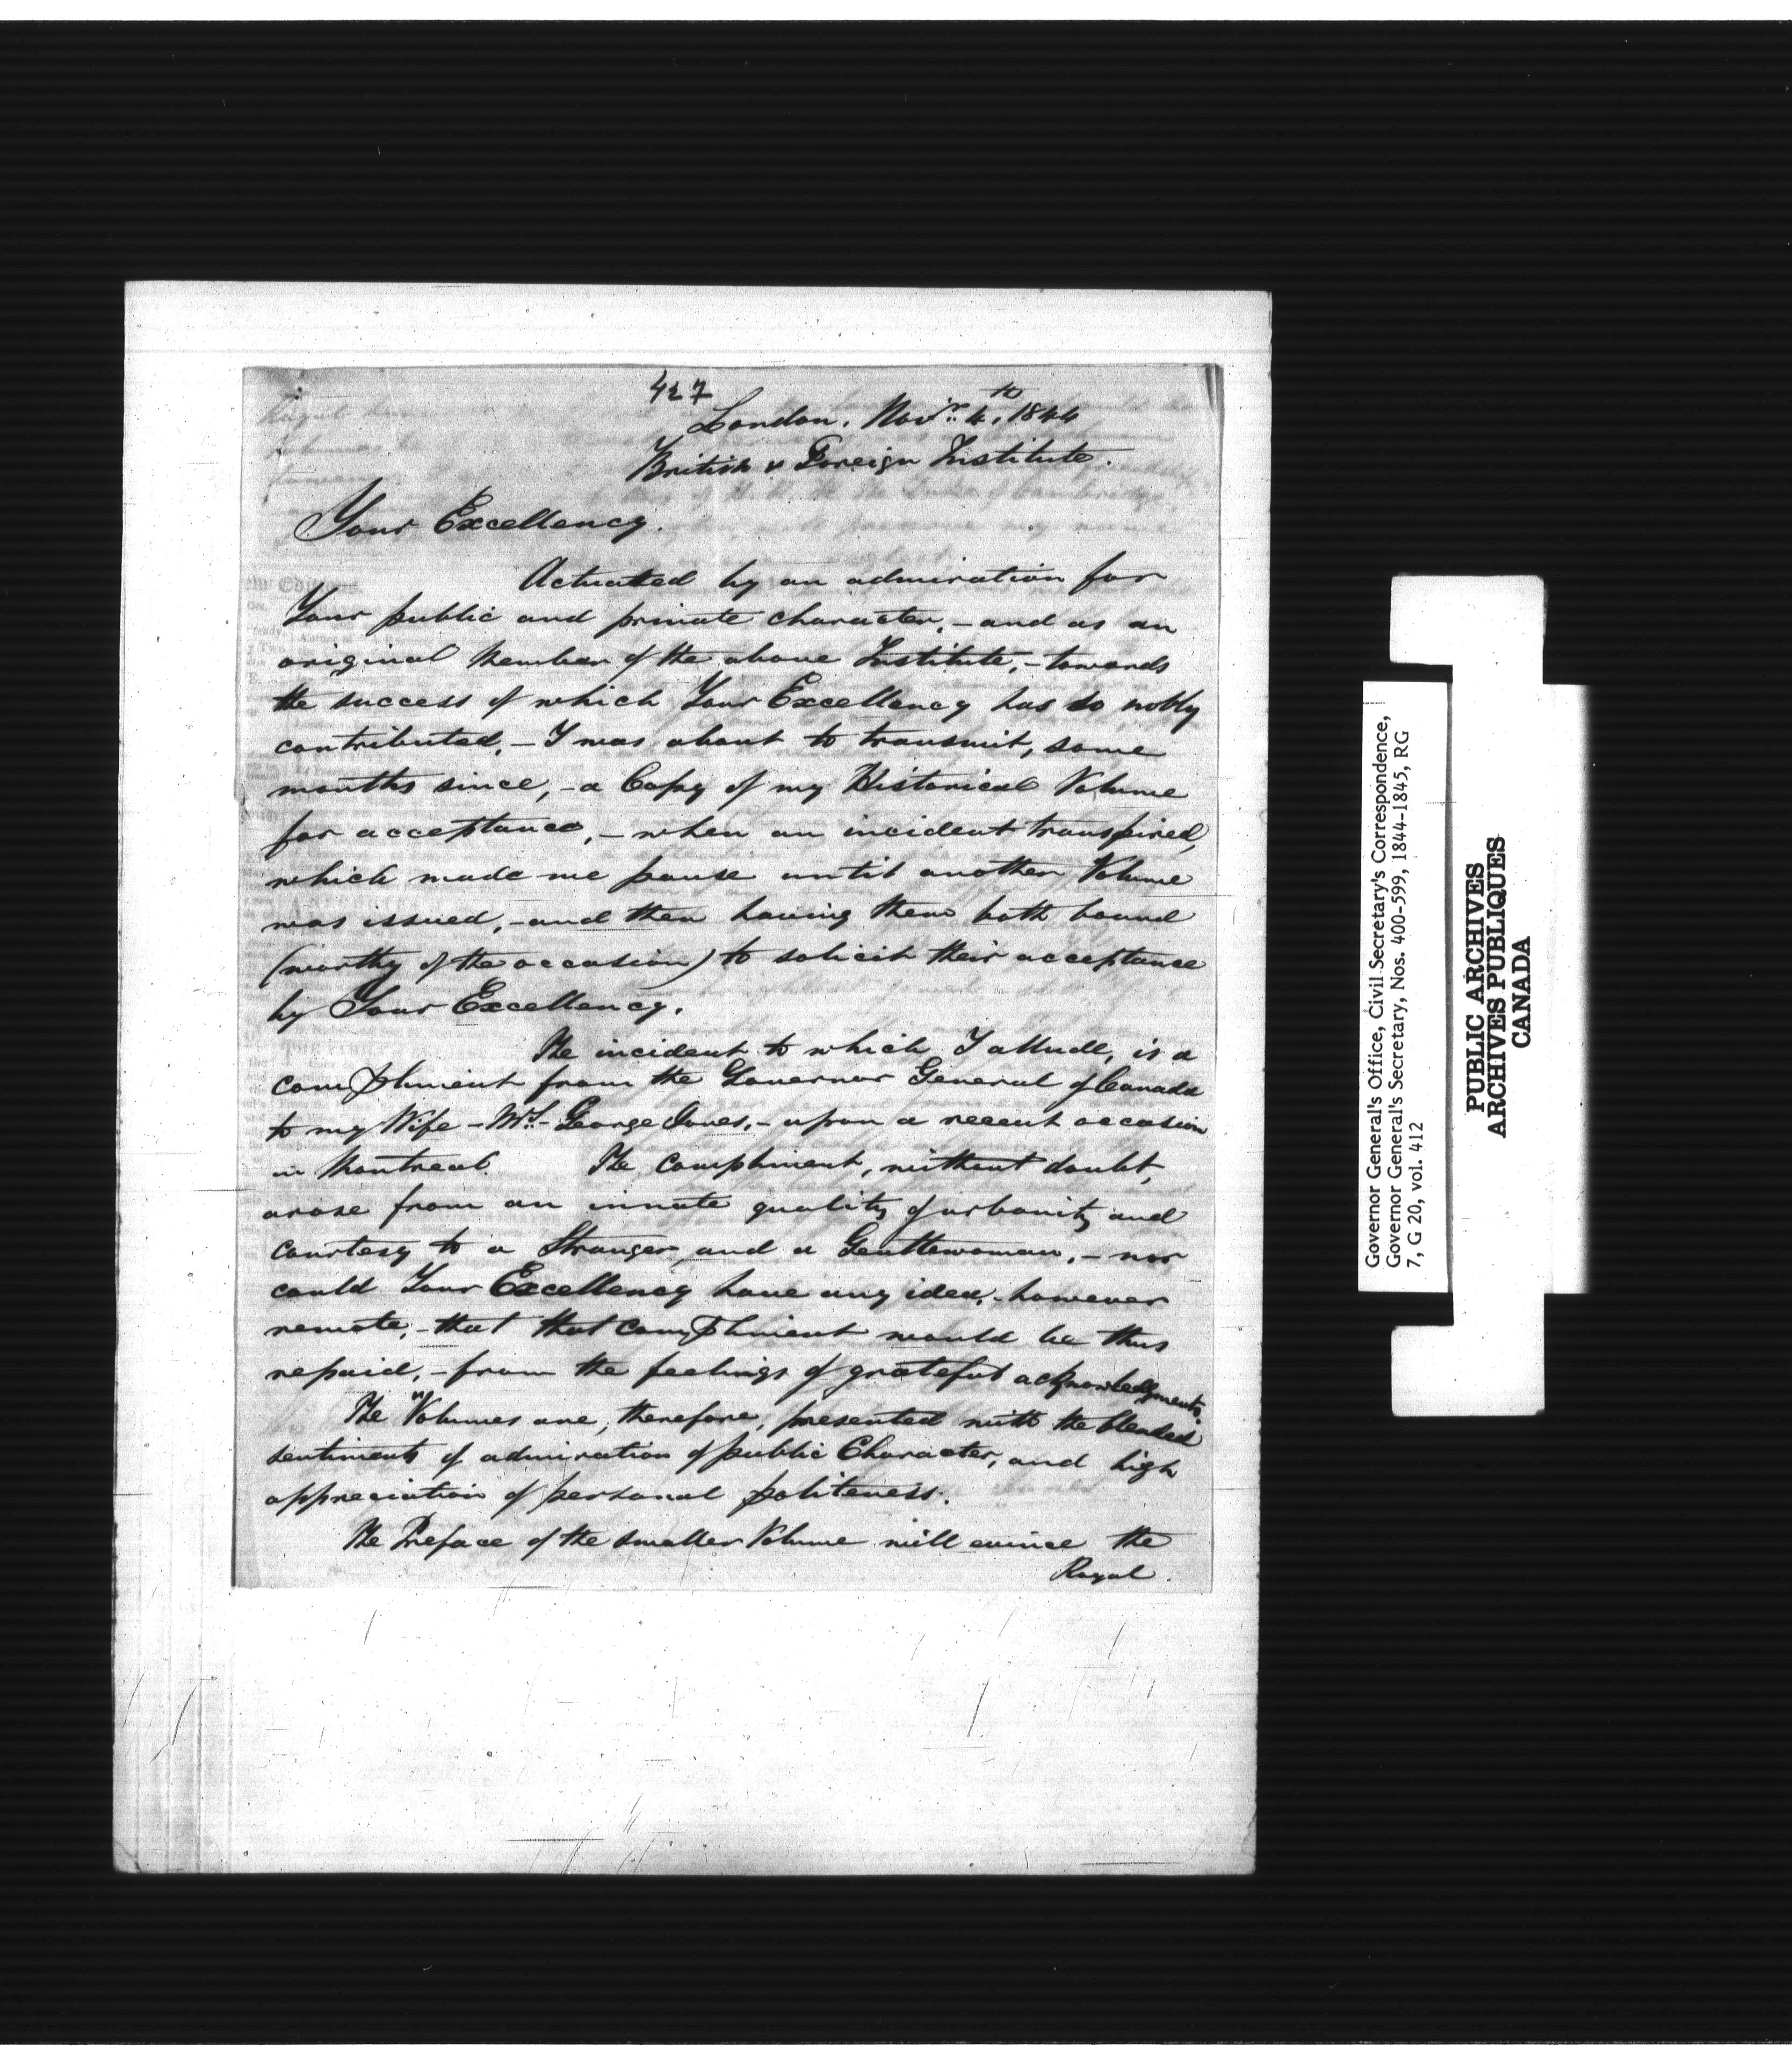 427
London. Novr. 4th, 1844
British & Foreign Institute.
Your Excellency.
Actuated by an admiration for
Your public and private character, - and as an
original Member of the above Institute, - towards
the success of which Your Excellency has so nobly
contributed, - I was about to transmit, some
months since, - a Copy of my Historical Volume
for acceptance, - when an incident transpired,
which made me pause until another Volume
was issued, - and then having them both bound
(worthy of the occasion) to solicit their acceptance
by Your Excellency.
The incident to which I allude, is a
compliment from the Governor General of Canada
to my Wife - Mrs. George Jones, - upon a recent occasion
in Montreal. The Compliment, without doubt,
arose from an innate quality of urbanity and
courtesy to a Stranger, and a Gentlewoman, - nor
could Your Excellency have any idea, - however
remote, - that that compliment would be thus
repaid, - from the feelings of grateful acknowledgments.
The Volumes are, therefore, presented with the blended
sentiments of admiration of public Character, and high
appreciation of personal politeness.
The Preface of the smaller Volume will evince the
Royal
Governor General's Office, Civil Secretary's Correspondence,
Governor General's Secretary, Nos. 400-599, 1844-1845, RG
7, G 20, vol. 412
PUBLIC ARCHIVES
ARCHIVES PUBLIQUES
CANADA